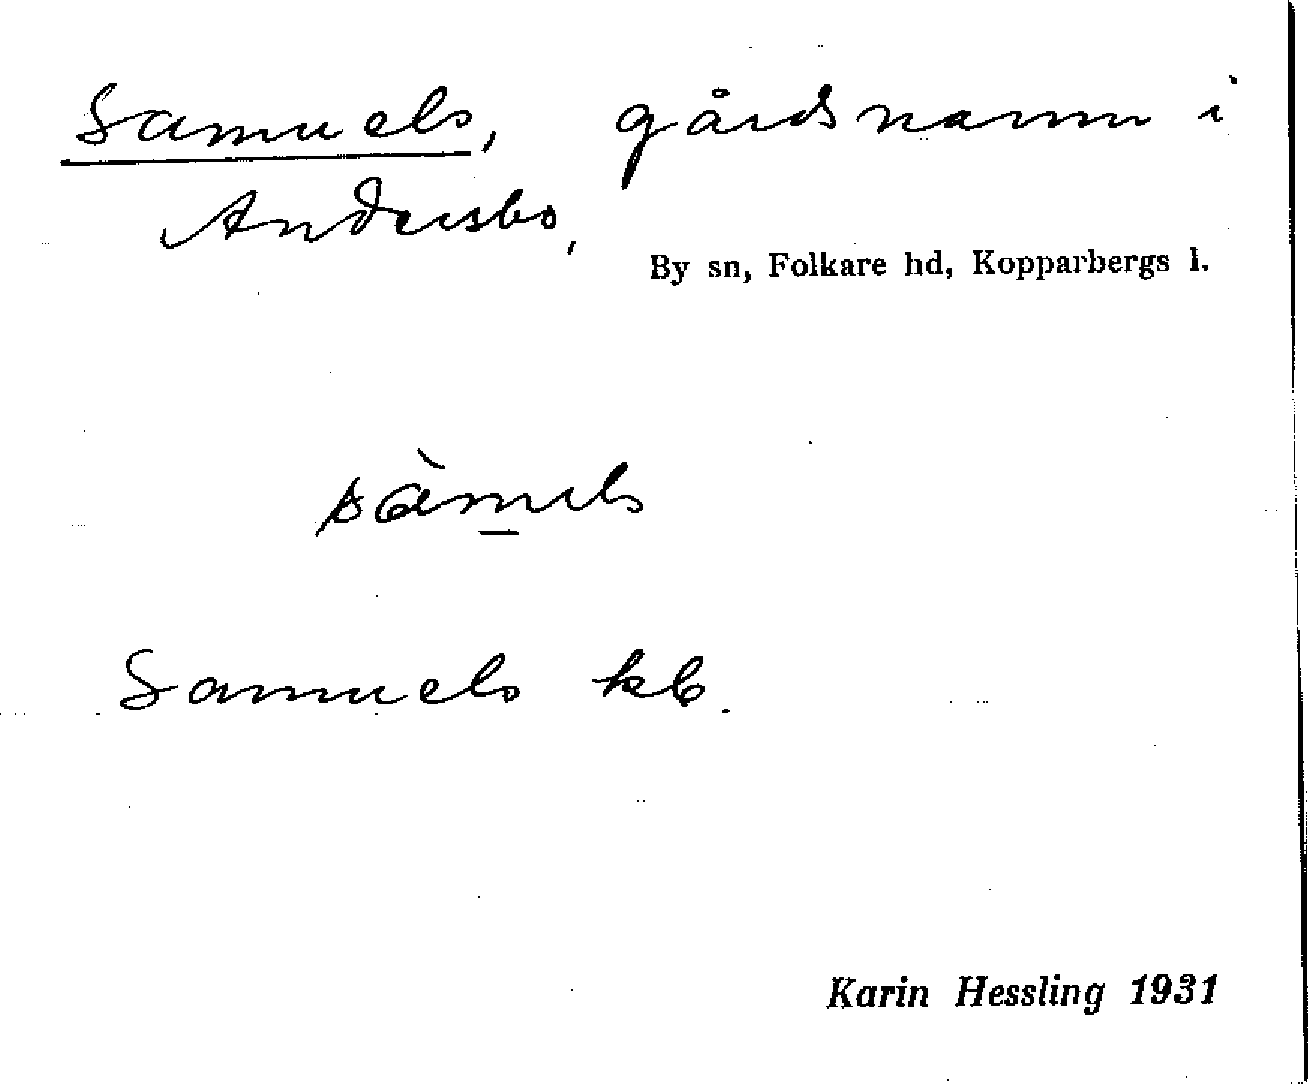 Samuels, gårdsnamn i
Andersbo,
By sn, Folkare hd, Kopparbergs l.
sàmuls
Samuels kb.
Karin Hessling 1931